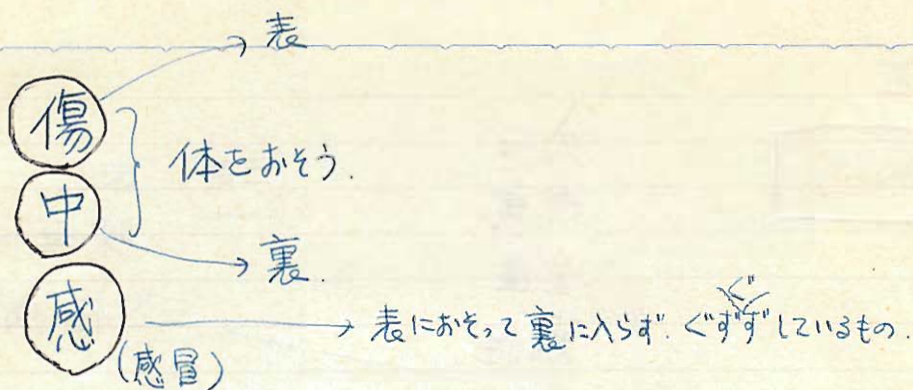 → 表
傷
体をおそう.
中
→ 裏.
感 → 表におそって裏に入らず. ぐずぐずしているもの.
(感冒)